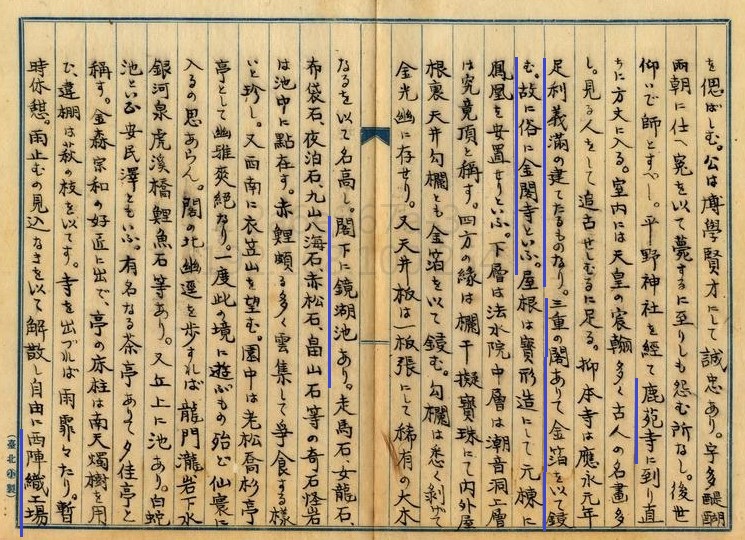 を偲ばしむ。公は博學賢才にして誠忠あり。宇多醍醐
兩朝に仕へ寃を以て薨ずるに至りしも怨む所なし。後世
仰いで師とすべし。平野神社を經て鹿苑寺に到り直
ちに方丈に入る。室内には天皇の宸翰多く古人の名畫多
し。見る人をして追古せしむるに足る。抑本寺は應永元年
足利義滿の建てたるものなり。三重の閣ありて金箔を以て鏤
む。故に俗に金閣寺といふ。屋根は寳形造にして元棟に
鳳凰を安置せりといふ。下層は法水院中層は潮音洞上層
は究竟頂と稱す。四方の緣は欄干擬寳珠にて内外屋
根裏天井勾欄とも金箔を以て鏤む。勾欄は悉く剥げて
金光幽に存せり。又天井板は一板張にして稀有の大木
なるを以て名高し。閣下に鏡湖池あり。走馬石、女龍石、
布袋石、夜泊石、九山八海石赤松石、畠山石等の奇石怪岩
は池中に點在す。赤鯉頗る多く雲集して爭食する樣
いと珍し。又西南に衣笠山を望む。園中は老松喬杉亭
亭として幽雅爽絕なり。一度此の境に遊ぶもの殆ど仙寰に
入るの思あらん。閣の北幽逕を歩すれば龍門瀧岩下水
銀河泉虎溪橋鯉魚石等あり。又丘上に池あり。白蛇
池といひ安民澤ともいふ。有名なる茶亭ありて夕佳亭と
稱す。金森宗和の好匠に出で、亭の床柱は南天燭樹を用
ひ、違棚は萩の枝を以てす。寺を出づれば雨霏々たり。暫
時休憩。雨止むの見込なきを以て解散し自由に西陣織工場
(臺北小製)